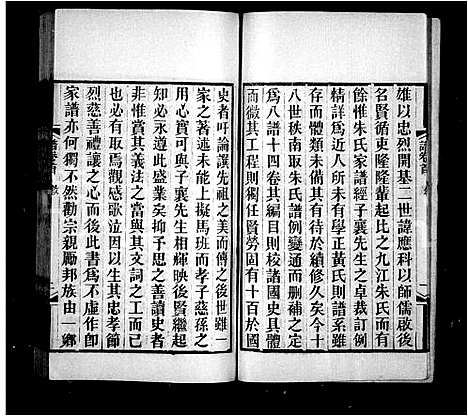 雄以忠烈開基二世諱應科以師儒啟後
名賢循吏隆隆輩起比之九江朱氏而有
餘惟朱氏家譜經子襄先生之卓裁訂例
精詳為近人所未有學正黃氏則譜系雖
存而體類未備其有待於續修久矣今十
八世秩南取朱氏譜例變通而刪補之
為八譜十四卷其編則稜諸國史具體
而微其工程則獨任賢勞固有十百於國
史者吁論譔先祖之美而傳之後世雖一
家之著述未能上擬馬班而孝子慈孫之
用心實可與子襄先生相輝映後賢繼起
知必永遠此盛業矣抑予思之善讀史者
非惟賞其義法之富與其文詞之工而已
也必有取焉觀感歌泣因以生其忠孝節
烈慈善禮讓之心而後此書為不虛作卽
家譜亦何獨不然勸宗親勵邦族由一鄉
譜卷首